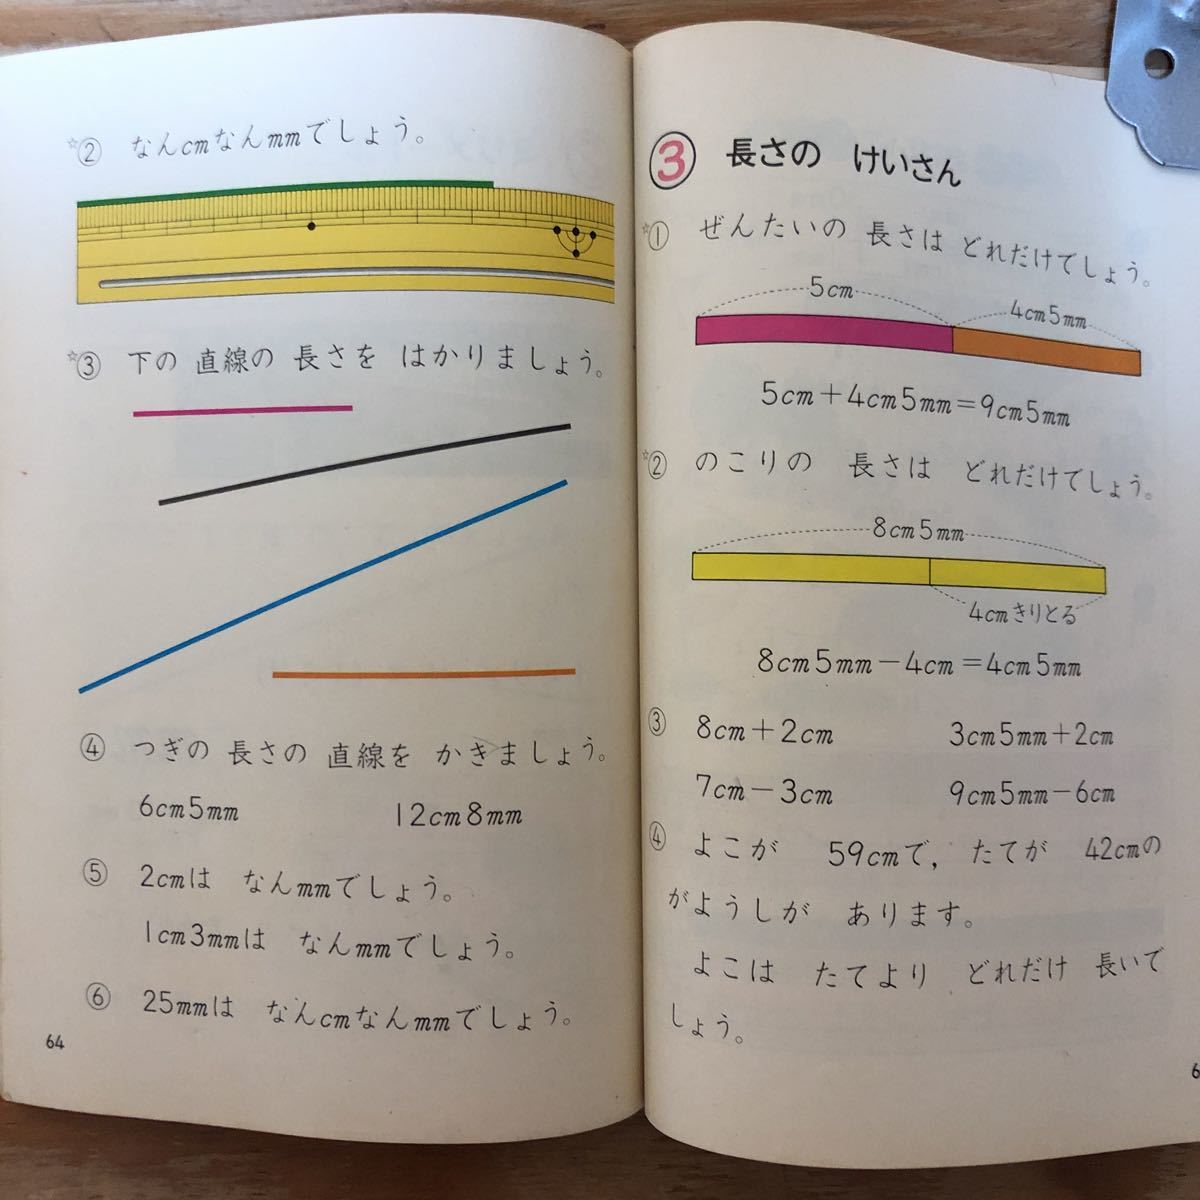 ☆② なんcmなんmmでしょう。
☆③ 下の 直線の 長さを はかりましょう。
④ つぎの 長さの 直線を かきましょう。
6cm5mm 12cm8mm
⑤ 2cmは なんmmでしょう。
1cm3mmは なんmmでしょう。
⑥ 25mmは なんcmなんmmでしょう。
64
3 長さの けいさん
☆① ぜんたいの 長さは どれだけでしょう。
5cm 4cm5mm
5cm+4cm5mm=9cm5mm
☆② のこりの 長さは どれだけでしょう。
8cm5mm
4cmきりとる
8cm5mm−4cm=4cm5mm
③ 8cm+2cm 3cm5mm+2cm
7cm−3cm 9cm5mm−6cm
④ よこが 59cmで, たてが 42cmの
がようしが あります。
よこは たてより どれだけ 長いで
しょう。